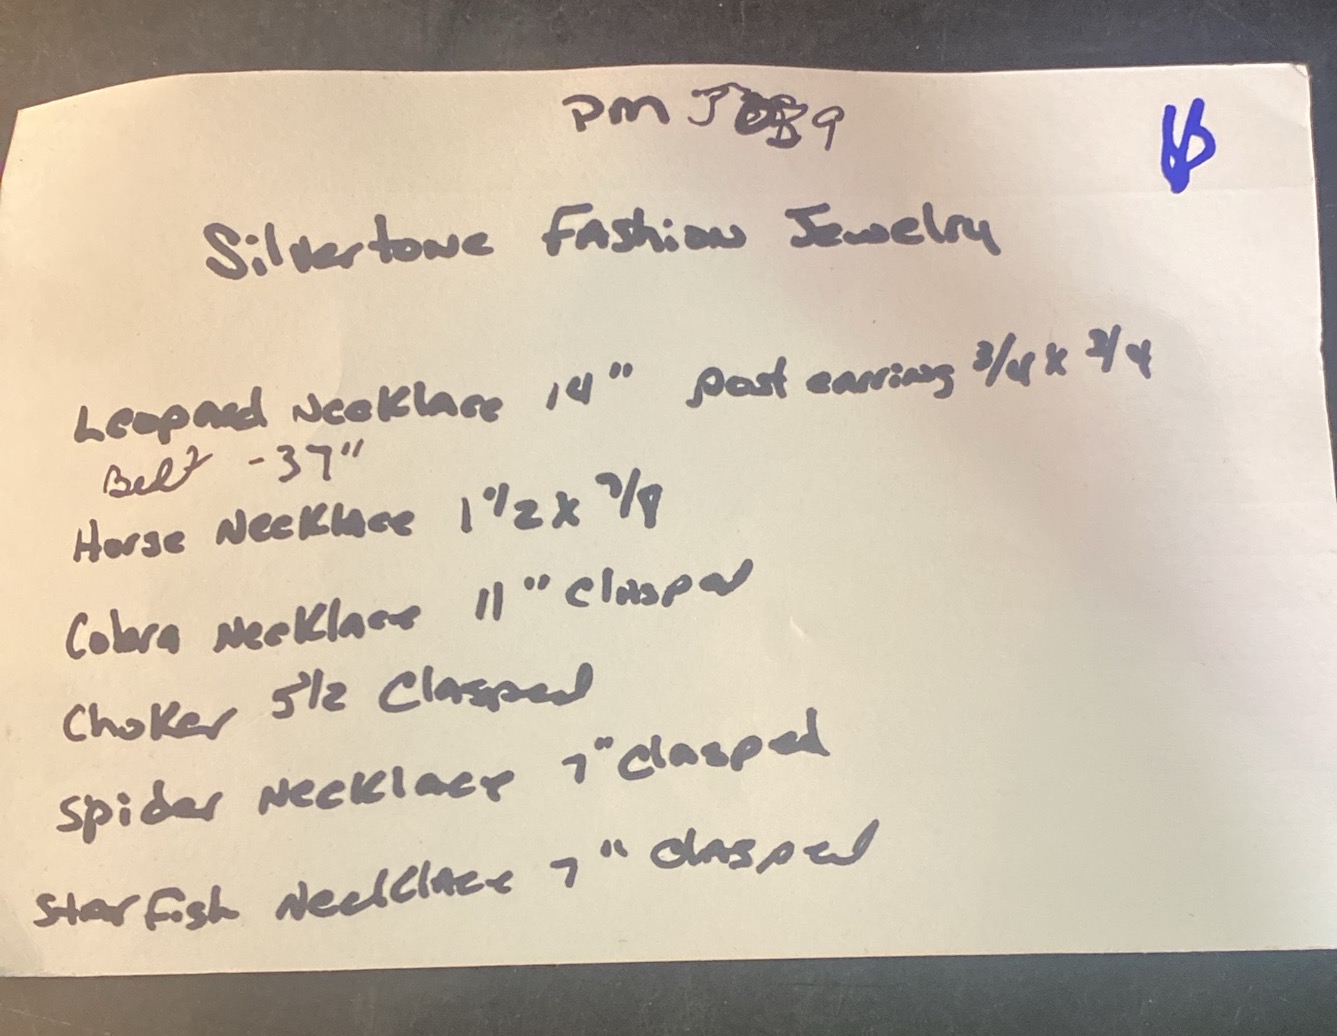 PM J 9
Silvertone Fashion Jewelry
Leopard Necklace 14" post earring 3/4 x 3/4
Belt - 37"
Horse Necklace 1 1/2 x 7/8
Cobra Necklace 11" Clasped
Choker 5 1/2 Clasped
Spider Necklace 7" Clasped
Starfish Necklace 7" Clasped